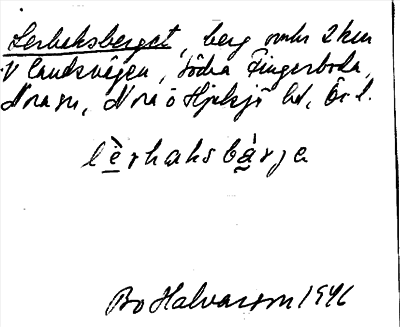 Lerbaksberget, berg omkr 2 km
V landsvägen, södra Fingerboda,
Nora sn, Nora o Hjulsjö hd, Ör l.
lèrhaksbàrje
Bo Halvarson 1946